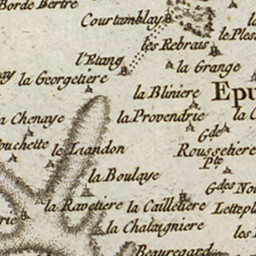 Borde Bertre
Courtamblay
les Rebrais
le Ples
l'Etang
la Grange
la Georgetiere
la Bliniere
Epu
la Chenaye
la Provendrie
la C
Gde
ouchette
le Landon
Roussetiere
Pte
la Boulaye
Gdes No
la Ravetiere
la Cailletiere
Lettepl
rie
la Chataigniere
les
Beauregard